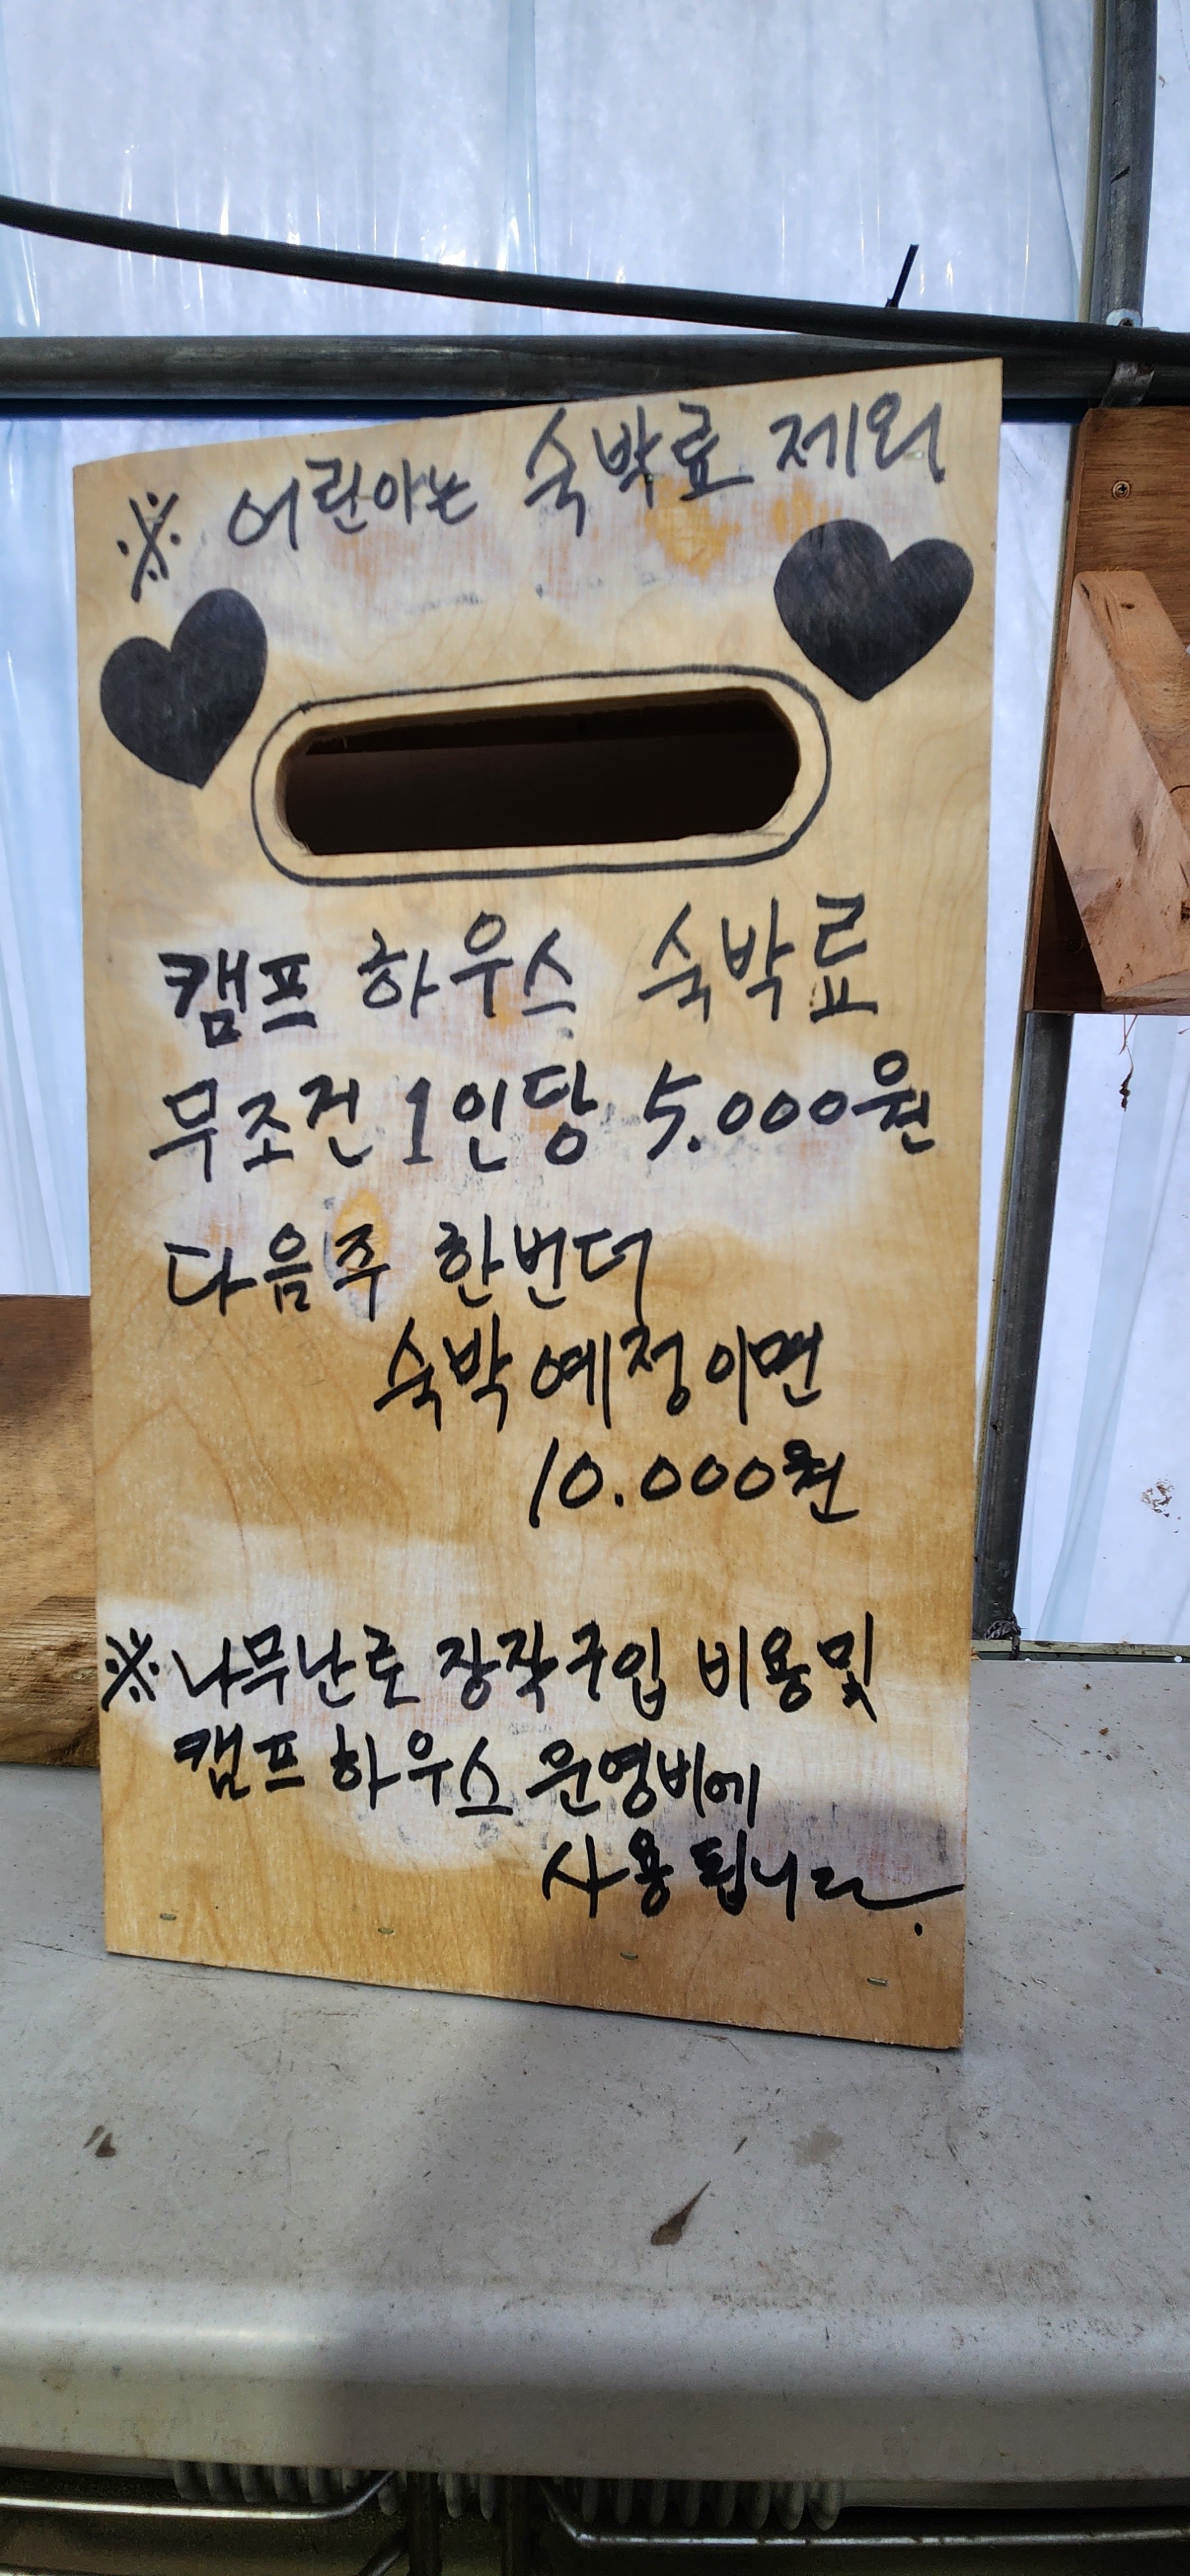 ※ 어린아는 숙박료 제외
캠프 하우스 숙박료
무조건 1인당 5.000원
다음주 한번더
숙박예정이면
10.000원
※ 나무난로 장작구입 비용및
캠프 하우스 운영비에
사용됩니다.